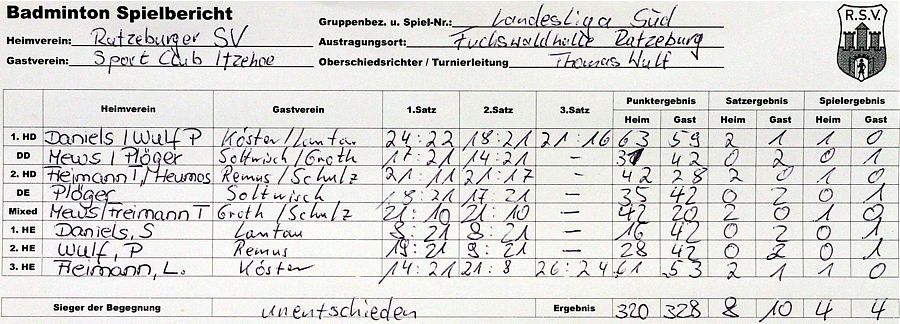 Badminton Spielbericht
Gruppenbez. u. Spiel-Nr.: Landesliga Süd
Heimverein: Ratzeburger SV Austragungsort: Fuchswaldhalle Ratzeburg
Gastverein: Sport Club Itzehoe Oberschiedsrichter / Turnierleitung Thomas Wulf
R.S.V.
Heimverein Gastverein 1.Satz 2.Satz 3.Satz Punktergebnis Satzergebnis Spielergebnis
Heim Gast Heim Gast Heim Gast
1. HD Daniels / Wulf P Köster / Lantau 24:22 18:21 21:16 63 59 2 1 1 0
DD Mews / Plöger Soltwisch / Groth 17:21 14:21 – 31 42 0 2 0 1
2. HD Heimann T. / Heumos Remus / Schulz 21:11 21:17 – 42 28 2 0 1 0
DE Plöger Soltwisch 18:21 17:21 – 35 42 0 2 0 1
Mixed Mews / Freimann T Groth / Schulz 21:10 21:10 – 42 20 2 0 1 0
1. HE Daniels, S Lantau 8:21 8:21 – 16 42 0 2 0 1
2. HE Wulf, P Remus 19:21 9:21 – 28 42 0 2 0 1
3. HE Heimann, L. Köster 14:21 21:8 26:24 61 53 2 1 1 0
Sieger der Begegnung unentschieden Ergebnis 320 328 8 10 4 4